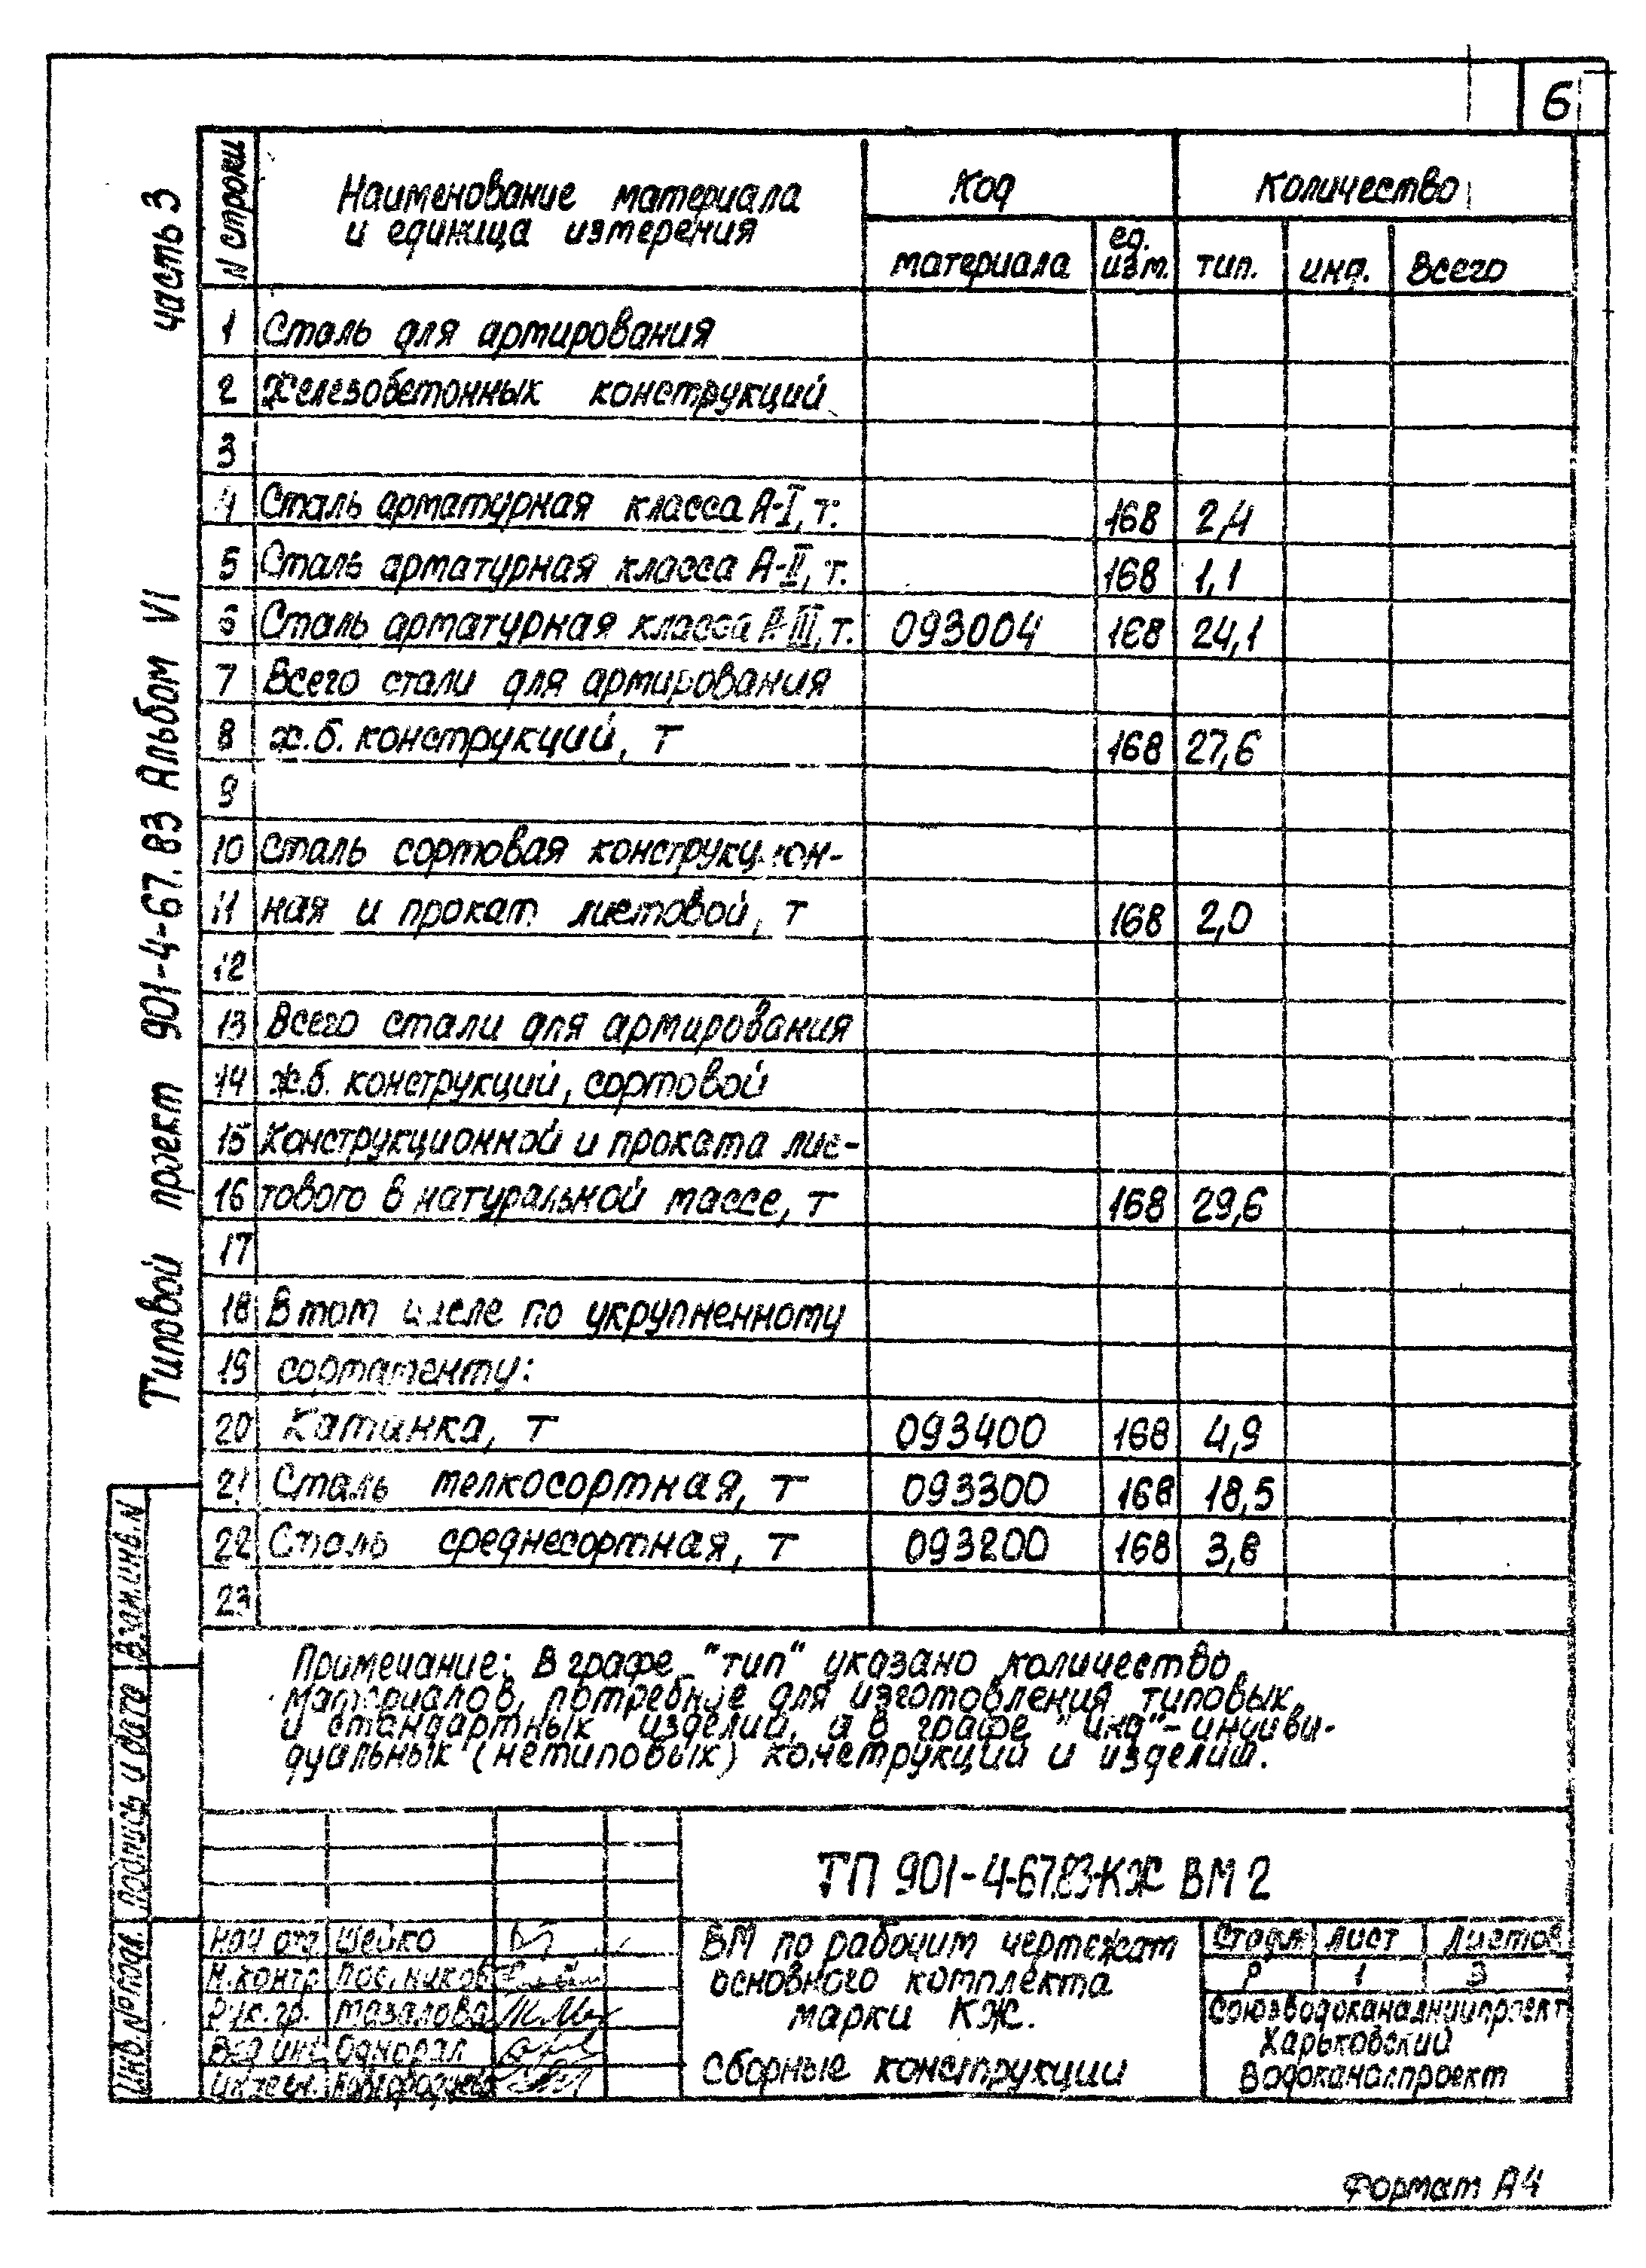 6
Типовой проект 901-4-67.83 Альбом VI часть 3
N строки
Наименование материала
и единица измерения
Код
Количество
материала
ед.
изм.
тип.
инд.
всего
1 Сталь для армирования
2 Железобетонных конструкций
3
4 Сталь арматурная класса А-I, т. 168 2,4
5 Сталь арматурная класса А-II, т. 168 1,1
6 Сталь арматурная класса А-III, т. 093004 168 24,1
7 Всего стали для армирования
8 ж.б. конструкций, т 168 27,6
9
10 Сталь сортовая конструкцион-
11 ная и прокат листовой, т 168 2,0
12
13 Всего стали для армирования
14 ж.б. конструкций, сортовой
15 Конструкционной и проката лис-
16 тового в натуральной массе, т 168 29,6
17
18 В том числе по укрупненному
19 сортаменту:
20 Катанка, т 093400 168 4,9
21 Сталь мелкосортная, т 093300 168 18,5
22 Сталь среднесортная, т 093200 168 3,8
23
Примечание: В графе "тип" указано количество
материалов, потребное для изготовления типовых
и стандартных изделий, а в графе "инд"- индиви-
дуальных (нетиповых) конструкций и изделий.
Взам.инв.N
Подпись и дата
Инв.№подл.
ТП 901-4-67.83-КЖ ВМ 2
Нач отд Шейко
Н.контр
Рук.гр. Мазалова
Вед инж
ВМ по рабочим чертежам
основного комплекта
марки КЖ.
Сборные конструкции
Стадия Лист Листов
Р 1 3
Союзводоканалниипроект
Харьковский
Водоканалпроект
Формат А4